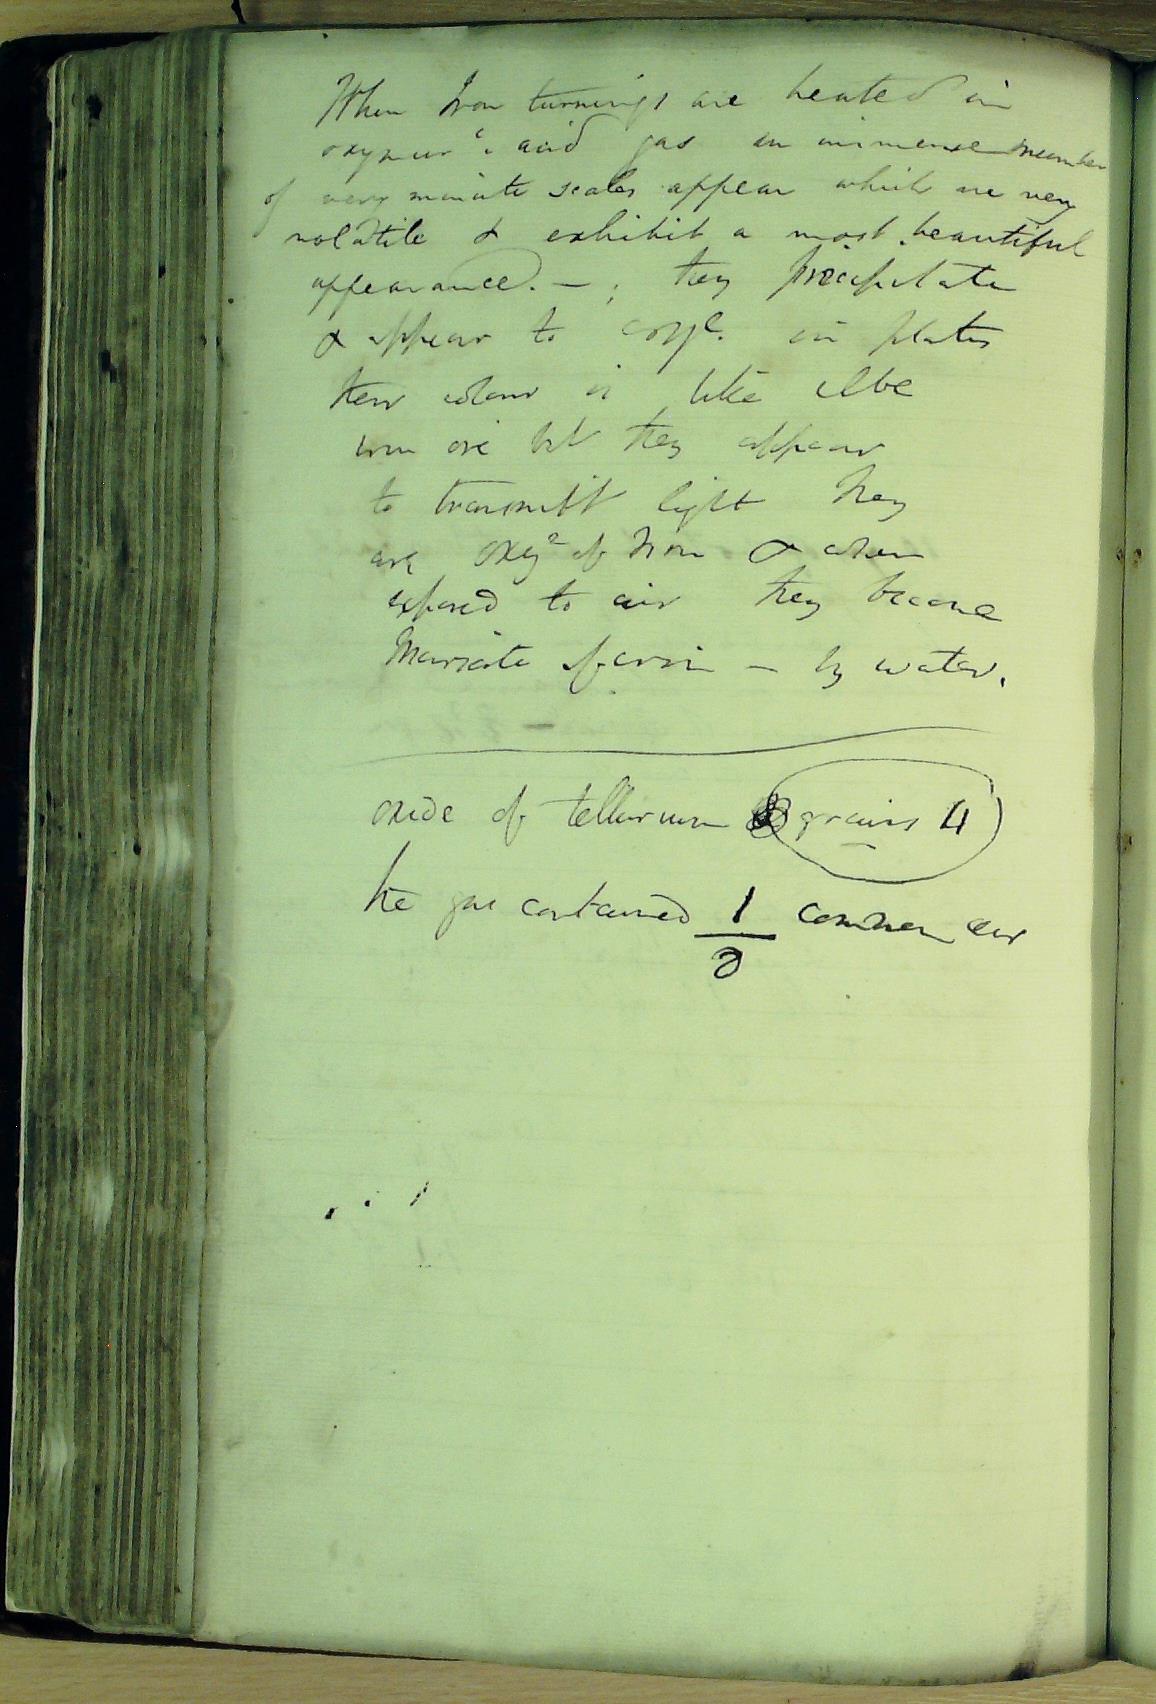 When Iron turnings are heated in
oxymurc. acid gas an immense number
of very minute scales appear which are very
volatile & exhibit a most beautiful
appearance. — ; they precipitate
& appear to in plates
their colour is like Elba
iron ore but they appear
to transmitt light they
are oxy of Iron & when
exposed to air they become
Muriate of iron — by water.
oxide of tellurium grains 4
the gas contained 1/ common air